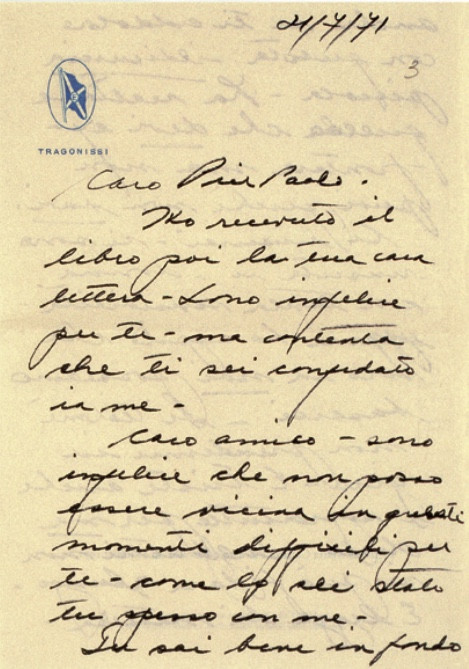 21/7/71
3
TRAGONISSI
Caro Pier Paolo.
Ho ricevuto il
libro poi la tua cara
lettera - Sono infelice
per te - ma contenta
che ti sei confidato
in me -
Caro amico - sono
infelice che non posso
essere vicina in questi
momenti difficili per
te - come lo sei stato
tu spesso con me -
Tu sai bene in fondo